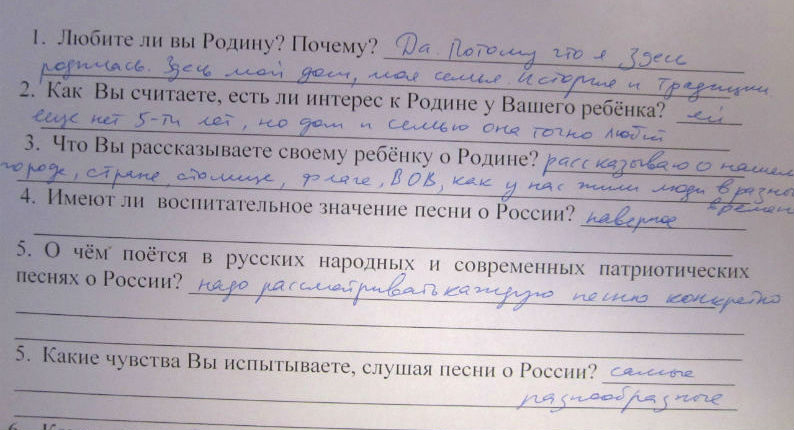 1. Любите ли вы Родину? Почему? Да. Потому что я здесь
родилась. Здесь мой дом, моя семья. История и традиции.
2. Как Вы считаете, есть ли интерес к Родине у Вашего ребёнка? ей
еще нет 5-ти лет, но дом и семью она точно любит
3. Что Вы рассказываете своему ребёнку о Родине? рассказываю о нашем
городе, стране, столице, флаге, ВОВ, как у нас жили люди в разно
времен
4. Имеют ли воспитательное значение песни о России? наверное
5. О чём поётся в русских народных и современных патриотических
песнях о России? надо рассматривать каждую песню конкретно
5. Какие чувства Вы испытываете, слушая песни о России? самые
разнообразные